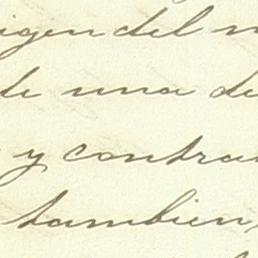 igen del
de una de
y contra
tambien,